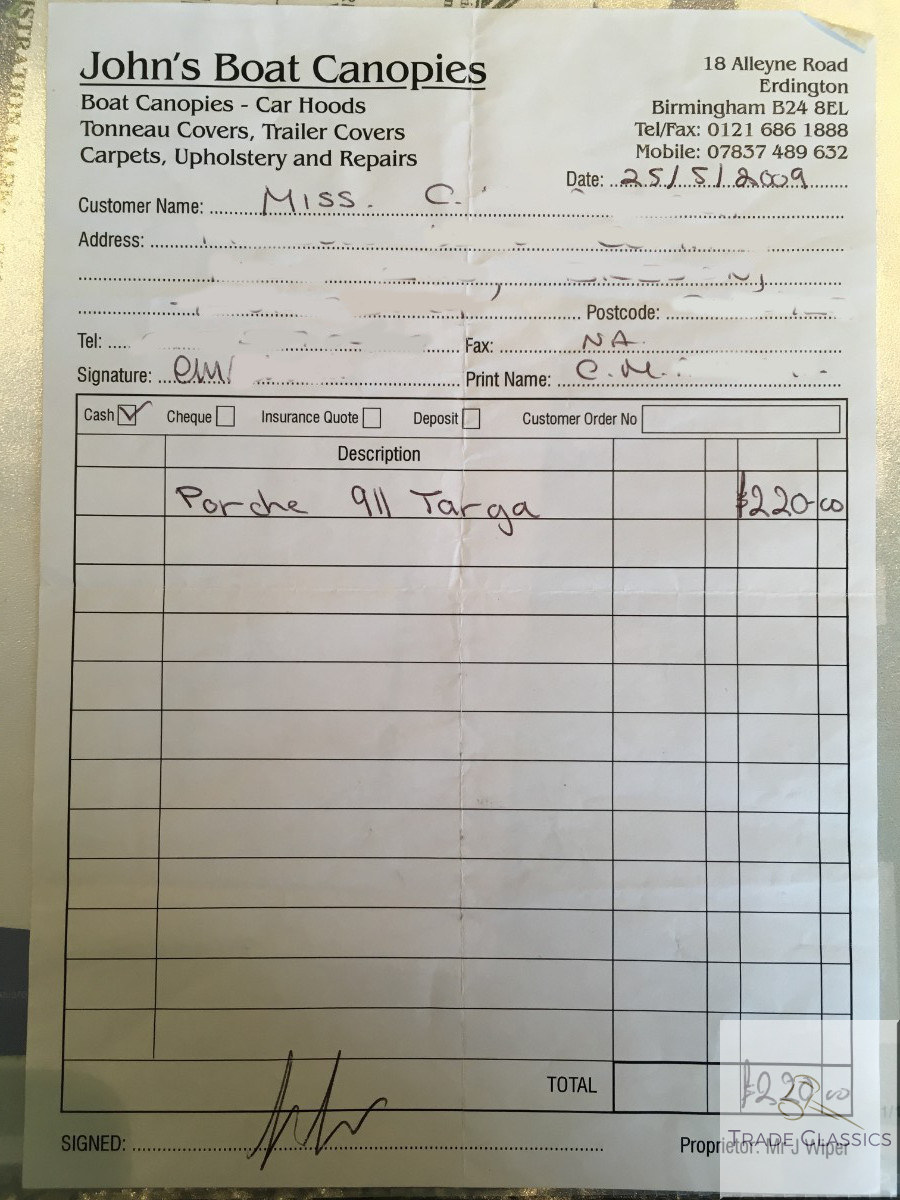 John's Boat Canopies
Boat Canopies - Car Hoods
Tonneau Covers, Trailer Covers
Carpets, Upholstery and Repairs
18 Alleyne Road
Erdington
Birmingham B24 8EL
Tel/Fax: 0121 686 1888
Mobile: 07837 489 632
Date: 25/5/2009
Customer Name: Miss. C.
Address:
Postcode:
Tel: Fax: NA
Signature: Print Name: C.M.
Cash Cheque Insurance Quote Deposit Customer Order No
Description
Porche 911 Targa £220-00
TOTAL £220 00
SIGNED: Proprietor: Mr J Wiper
TRADE CLASSICS